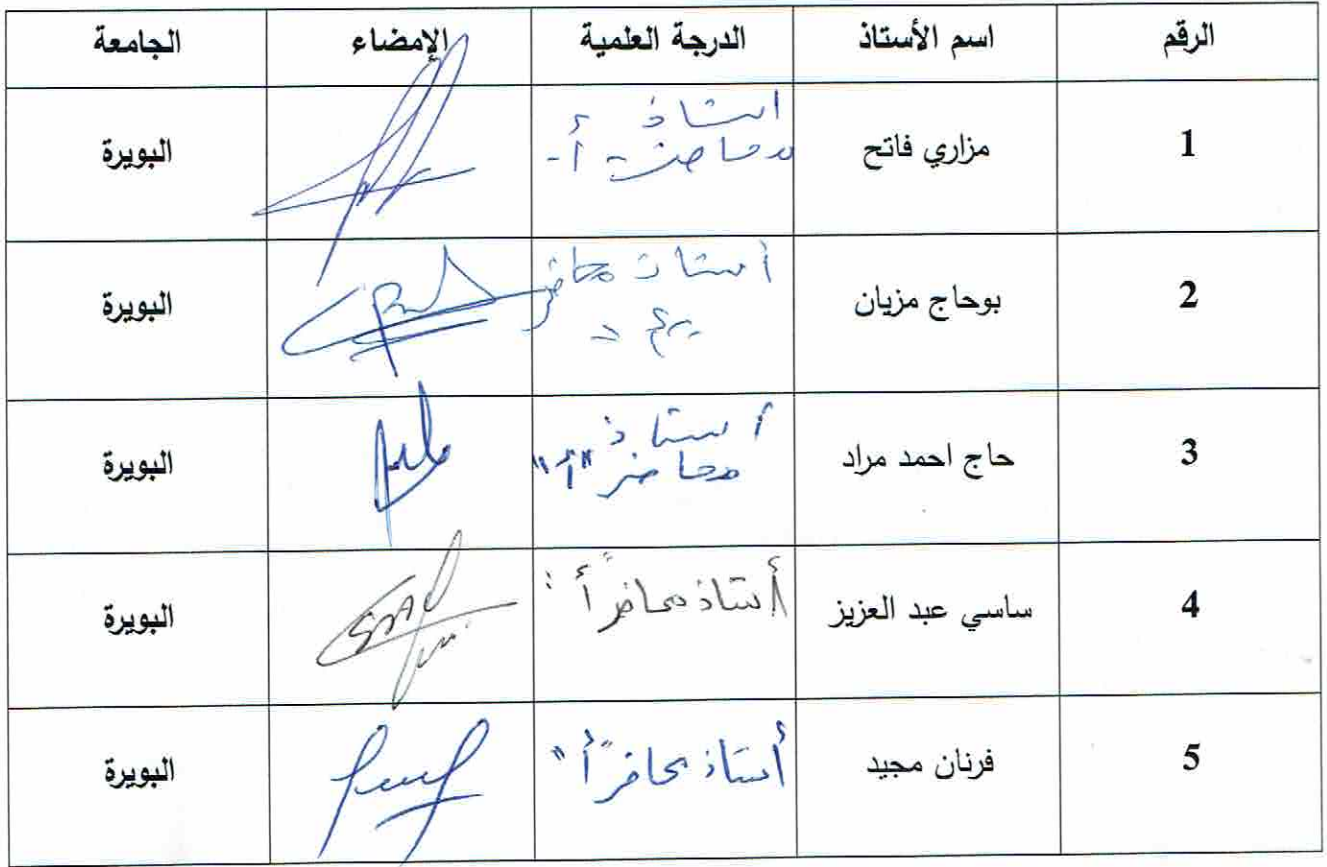 الرقم اسم الأستاذ الدرجة العلمية الإمضاء الجامعة
1 مزاري فاتح أستاذ محاضر -أ- البويرة
2 بوحاج مزيان أستاذ محاضر البويرة
3 حاج احمد مراد أستاذ محاضر "أ" البويرة
4 ساسي عبد العزيز أستاذ محاضر "أ" البويرة
5 فرنان مجيد أستاذ محاضر "أ" البويرة